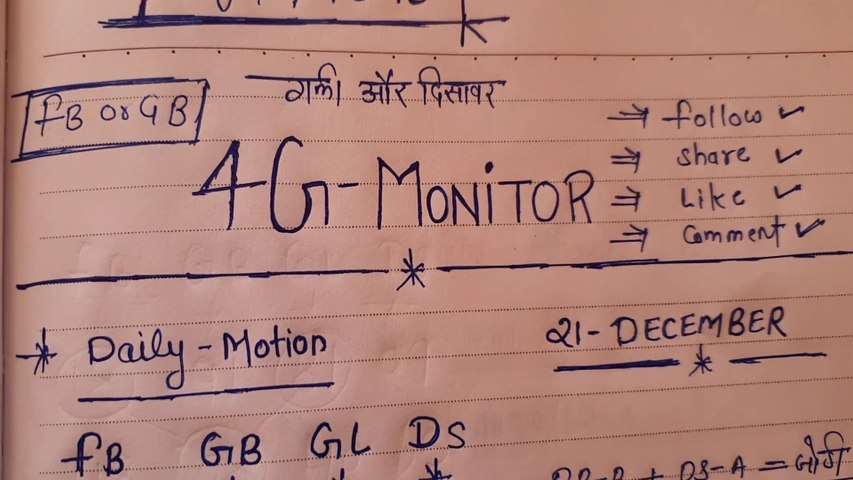 FB or GB
गली और दिसावर
4G-MONiTOR
⇒ follow ✓
⇒ share ✓
⇒ Like ✓
⇒ Comment ✓
* Daily-Motion
21-DECEMBER
FB GB GL DS
+ DS-A = जोड़ी